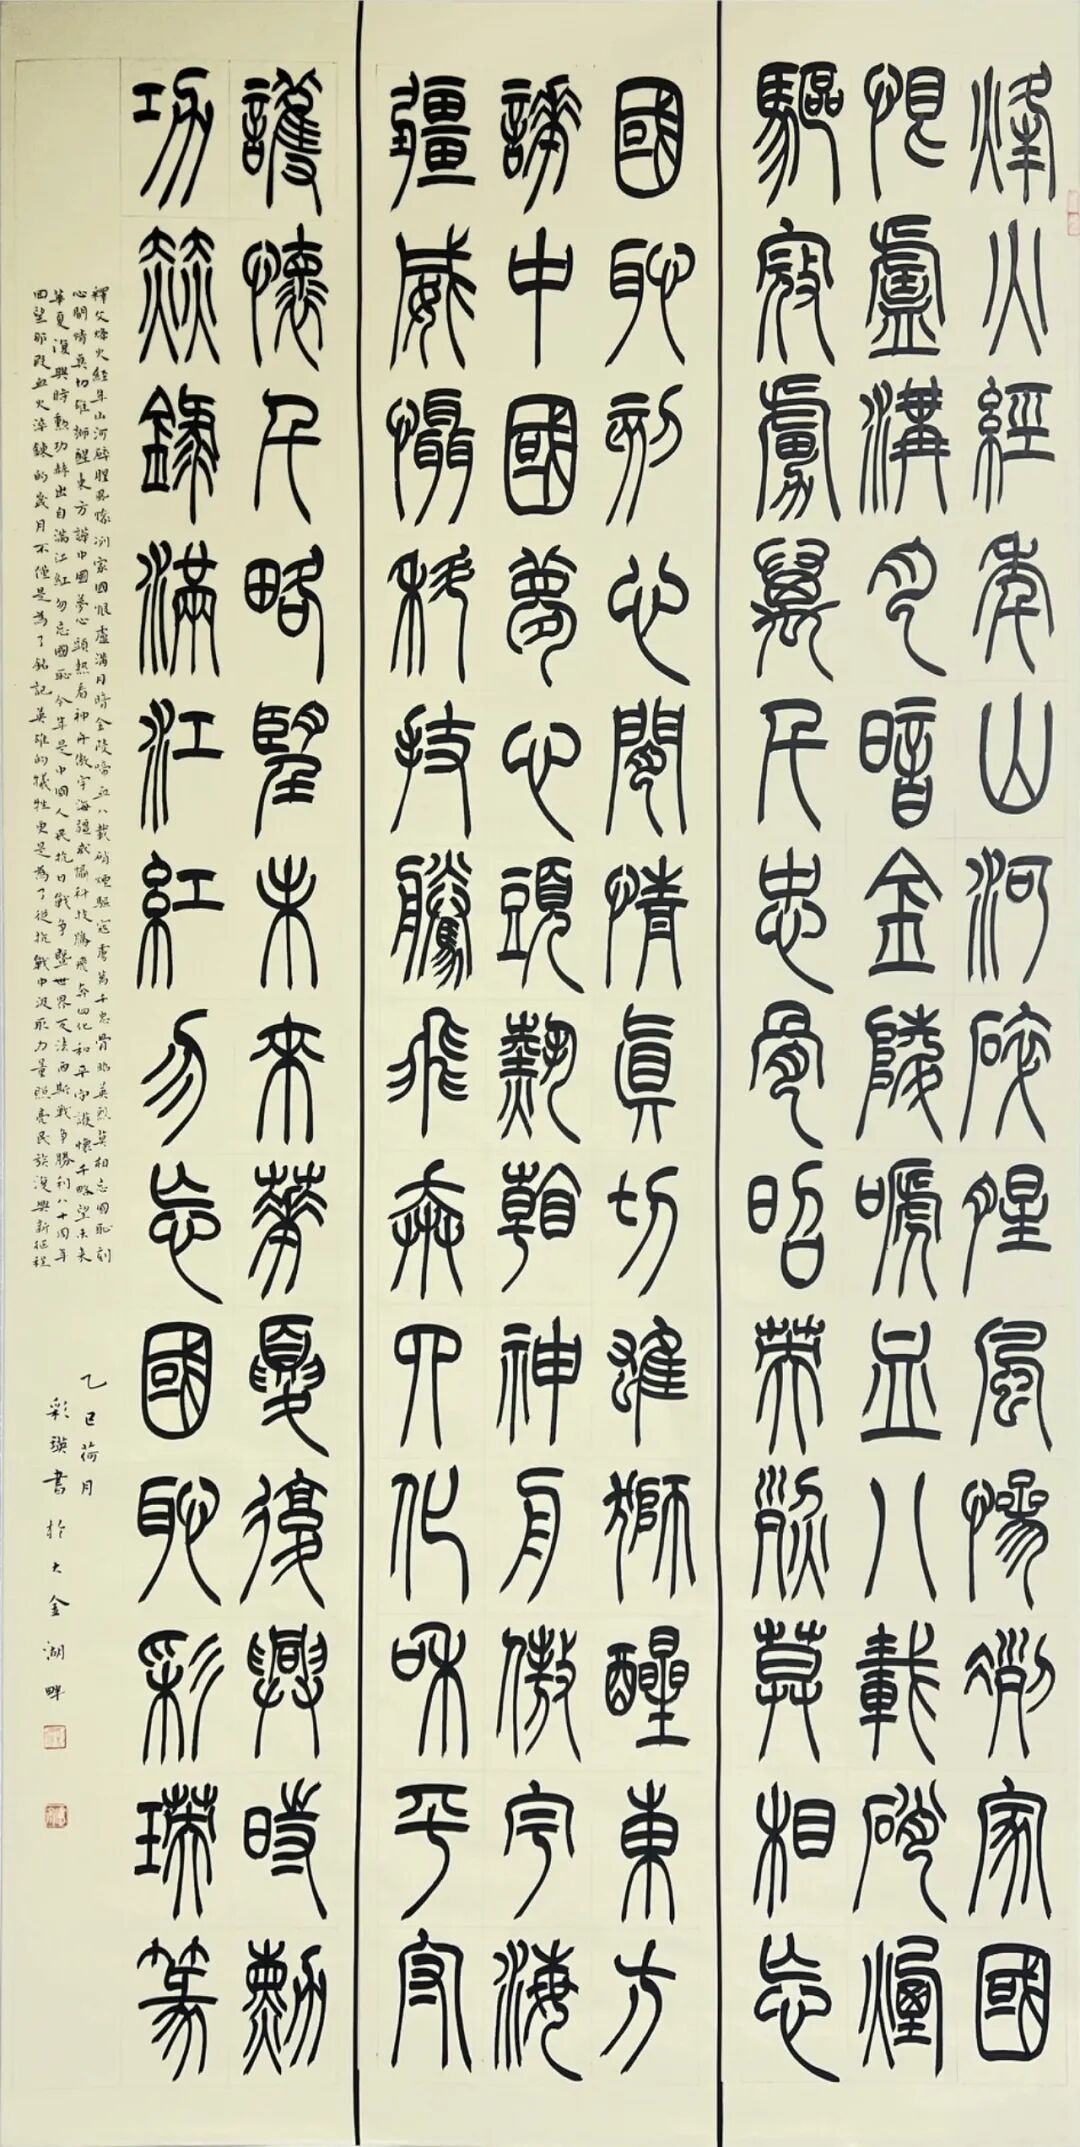 烽火經年山河碎腥風慘冽家國
恨盧溝月暗金陵嚎血八載硝煙
驅寇虜萬千忠骨昭英烈莫相忘
國恥刻心間情真切雄獅醒東方
中國夢心頭熱看神舟傲宇海
疆威懾科技騰飛奔四化和平守
護懷千略望未來華夏復興時勳
功赫錄滿江紅勿忘國恥彩瑛篆
釋文烽火經年山河碎腥風慘冽家國恨盧溝月暗金陵嚎血八載硝煙驅寇虜萬千忠骨昭英烈莫相忘國恥刻
心間情真切雄獅醒東方中國夢心頭熱看神舟傲宇海疆威懾科技騰飛奔四化和平守護懷千略望未來
華夏復興時勳功赫出自滿江紅勿忘國恥今年是中國人民抗日戰爭暨世界反法西斯戰爭勝利八十周年
回望那段血火淬鍊的歲月不僅是為了銘記英雄的犧牲更是為了從抗戰中汲取力量照亮民族復興新征程
乙巳荷月
彩瑛書於大金湖畔